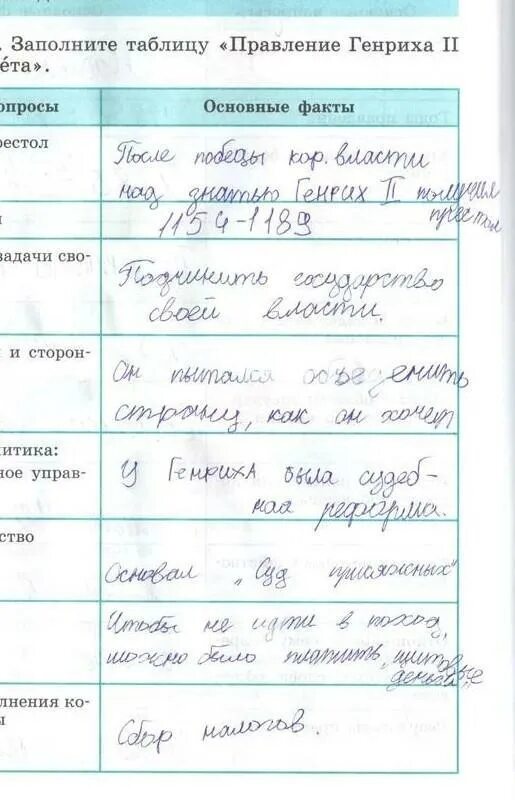 . Заполните таблицу «Правление Генриха II
éта».
опросы
Основные факты
рестол
После победы кор. власти
над знатью Генрих II получил
престол
и
1154-1189
задачи сво-
Подчинить государство
своей власти.
и сторон-
Он пытался объеденить
страну, как он хочет
литика:
ное управ-
У Генриха была судеб-
ная реформа.
ство
Основал „Суд присяжных"
Чтобы не идти в поход,
можно было платить „щитовые
деньги"
лнения ко-
ы
Сбор налогов.